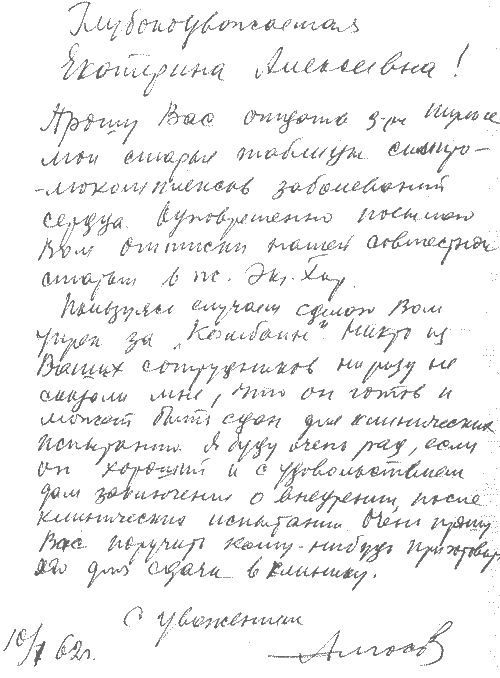 Глубокоуважаемая
Екатерина Алексеевна!
Прошу Вас отдать
мои старые таблицы симпто-
-мокомплексов заболеваний
сердца. Одновременно посылаю
Вам оттиски нашей совместной
статьи в ж. Экс. Хир.
Пользуясь случаем сделаю Вам
упрек за „Комбайн". Никто из
Ваших сотрудников ни разу не
сказали мне, что он готов и
может быть сдан для клинических
испытаний. Я буду очень рад, если
он хороший и с удовольствием
дам заключение о внедрении, после
клинических испытаний. Очень прошу
Вас поручить кому-нибудь приготовить
его для сдачи в клинику.
С уважением
10/ 62г.